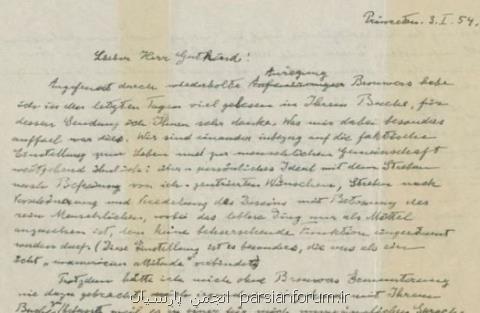 Princeton. 3. I. 54.
Lieber Herr Gutkind!
Anregung
Angefeuert durch wiederholte Brouwers habe
ich in den letzten Tagen viel gelesen in Ihrem Buche, für
dessen Sendung ich Ihnen sehr danke. Was mir dabei besonders
auffiel war dies. Wir sind einander inbezug auf die faktische
Einstellung zum Leben und zur menschlichen Gemeinschaft
weitgehend ähnlich: über-persönliches Ideal mit dem Streben
nach Befreiung von ich-zentrierten Wünschen, Streben nach
Verschönerung und Veredelung des Daseins mit Betonung des
rein Menschlichen, wobei das leblose Ding nur als Mittel
anzusehen ist, dem keine beherrschende Funktion eingeräumt
werden darf. (Diese Einstellung ist es besonders, die uns als ein
echt "unamerican attitude" verbindet)
Trotzdem hätte ich mich ohne Brouwers Ermunterung
nie dazu gebracht, mit Ihrem
parsianforum.ir انجمن پارسیان
Buch weil es in einer für mich Sprache